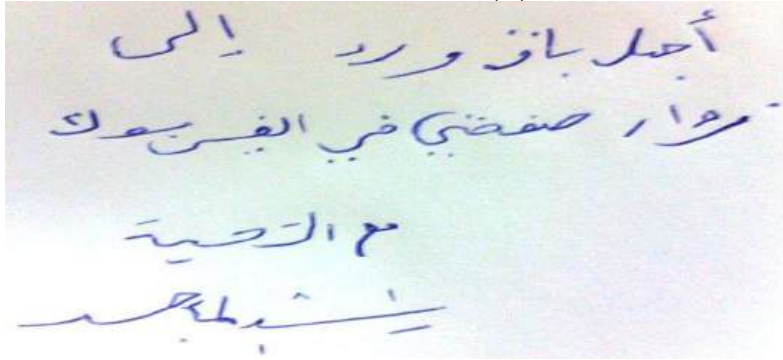 أجمل باقة ورد إلى
زوار صفحتي في الفيس بوك
مع التحية
راشد الماجد